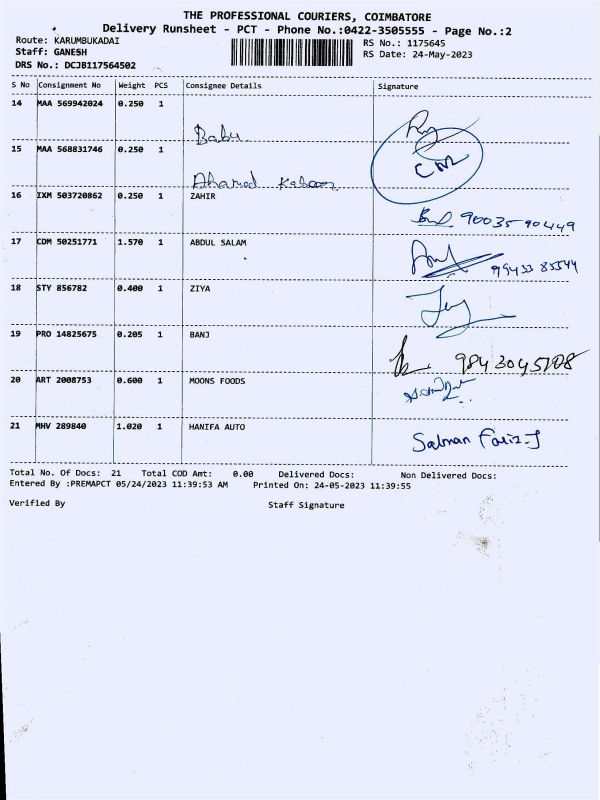 THE PROFESSIONAL COURIERS, COIMBATORE
Delivery Runsheet - PCT - Phone No.:0422-3505555 - Page No.:2
Route: KARUMBUKADAI RS No.: 1175645
Staff: GANESH RS Date: 24-May-2023
DRS No.: DCJB117564502
S No Consignment No Weight PCS Consignee Details Signature
14 MAA 569942024 0.250 1
Babu
15 MAA 568831746 0.250 1 CM
Ahamed
16 IXM 503720862 0.250 1 ZAHIR
90035 90449
17 CDM 50251771 1.570 1 ABDUL SALAM
99433 85544
18 STY 856782 0.400 1 ZIYA
19 PRO 14825675 0.205 1 BANJ
9843045708
20 ART 2008753 0.600 1 MOONS FOODS
21 MHV 289840 1.020 1 HANIFA AUTO
Salman Fariz.J
Total No. Of Docs: 21 Total COD Amt: 0.00 Delivered Docs: Non Delivered Docs:
Entered By :PREMAPCT 05/24/2023 11:39:53 AM Printed On: 24-05-2023 11:39:55
Verified By Staff Signature